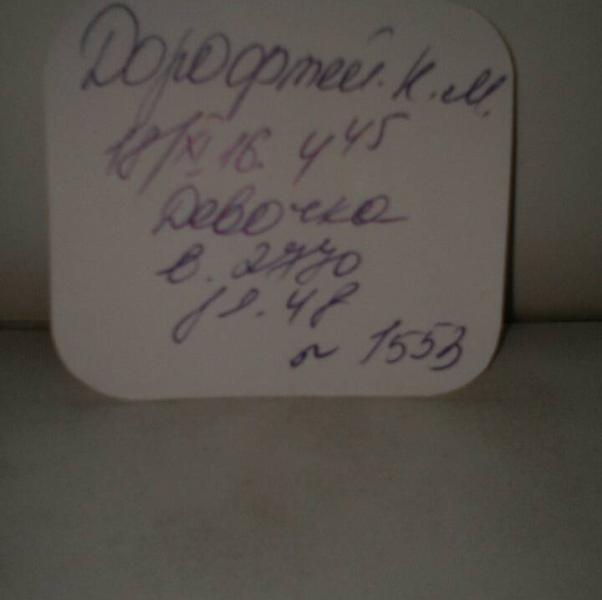 Дорофтей. К. М.
18/XI 16. 4 45
Девочка
в. 2770
дл. 48
N 1553